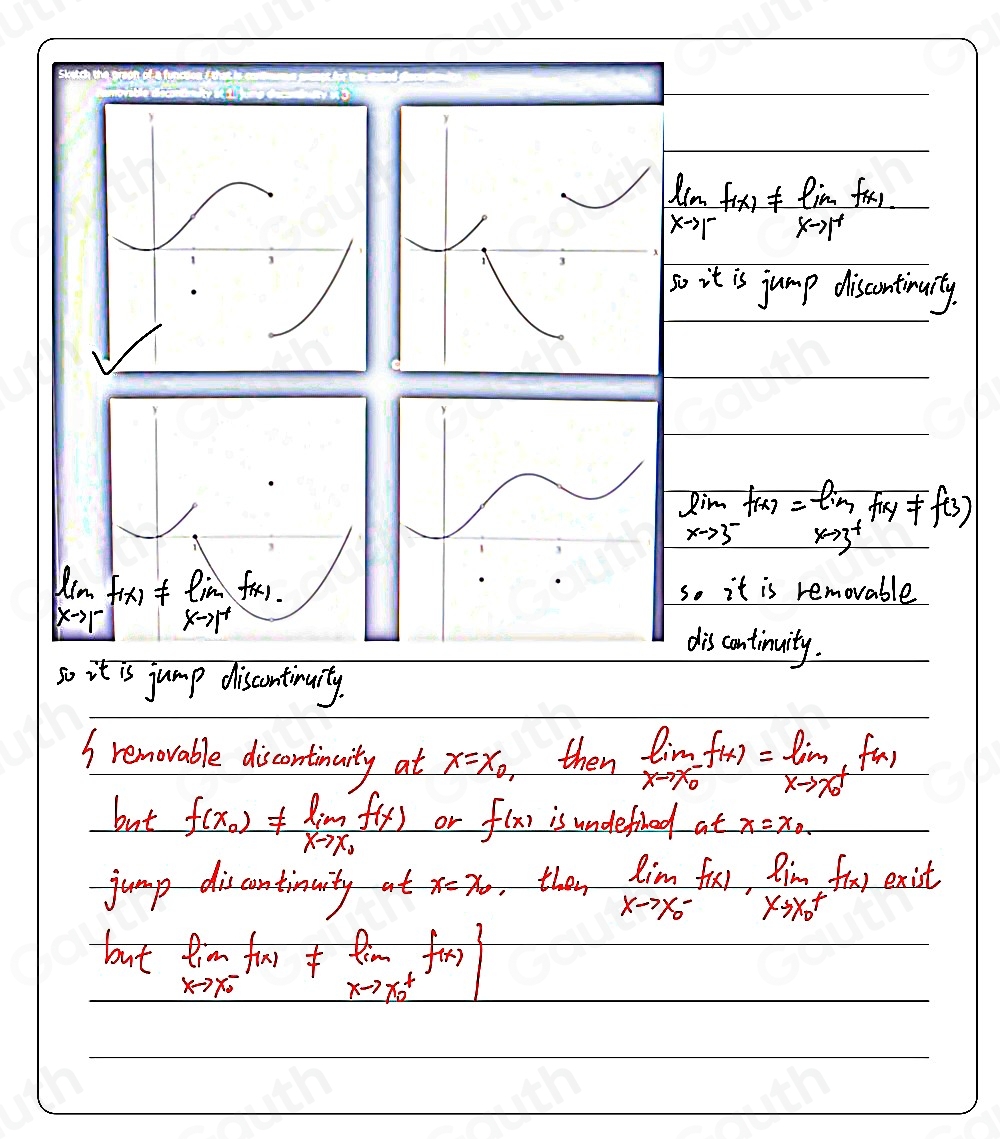 Sketch the graph of a function f that is continuous except for the stated discontinuity.
removable discontinuity at 1, jump discontinuity at 3
y
y
1
3
1
3
x
lim f(x) ≠ lim f(x).
x→1⁻ x→1⁺
so it is jump discontinuity.
✓
y
y
1
3
1
3
lim f(x) = lim f(x) ≠ f(3)
x→3⁻ x→3⁺
so it is removable
discontinuity.
lim f(x) ≠ lim f(x).
x→1⁻ x→1⁺
so it is jump discontinuity.
{ removable discontinuity at x=x₀, then lim f(x) = lim f(x)
x→x₀⁻ x→x₀⁺
but f(x₀) ≠ lim f(x) or f(x) is undefined at x=x₀.
x→x₀
jump discontinuity at x=x₀, then lim f(x), lim f(x) exist
x→x₀⁻ x→x₀⁺
but lim f(x) ≠ lim f(x) }
x→x₀⁻ x→x₀⁺